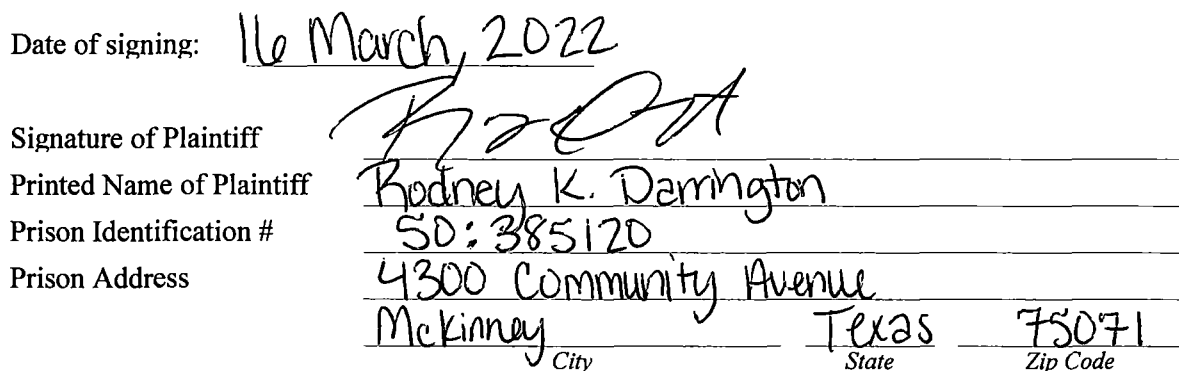 Date of signing: 16 March, 2022
Signature of Plaintiff
Printed Name of Plaintiff Rodney K. Darrington
Prison Identification # SO: 385120
Prison Address 4300 Community Avenue
McKinney Texas 75071
City State Zip Code